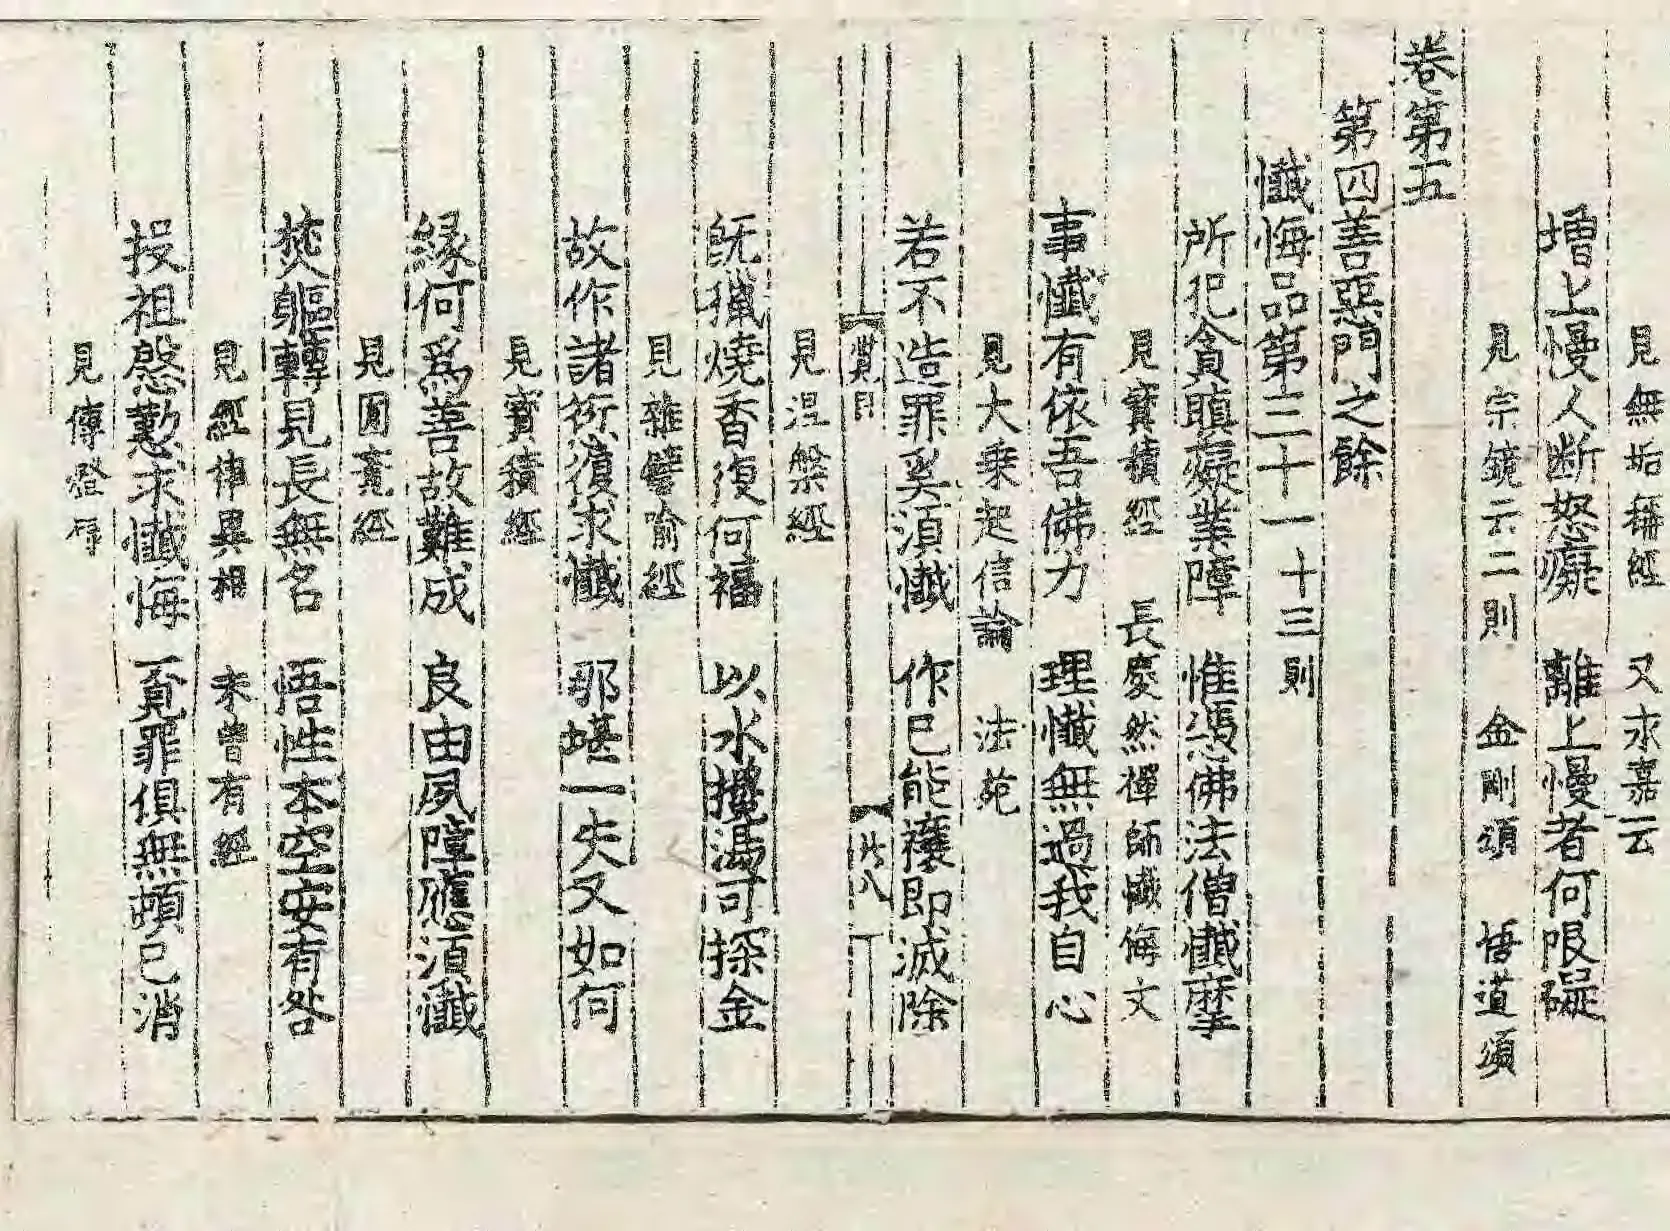 見無垢稱經 又永嘉云
增上慢人断怒癡 離上慢者何限礙
見宗鏡云二則 金剛頌 悟道頌
卷第五
第四善惡門之餘
懺悔品第三十一 十三則
所犯貪瞋癡業障 惟憑佛法僧懺摩
見寶積經 長慶然禪師懺悔文
事懺有依吾佛力 理懺無過我自心
見大乗起信論 法苑
若不造罪奚須懺 作已能禳即滅除
目 八
見涅槃經
既獵燒香復何福 以水攪可探金
見雜譬喻經
故作諸衍復求懺 那堪一失又如何
見寶積經
縁何爲善故難成 良由夙障應須懺
見圓覺經
焚軀轉見長無名 悟性本空安有咎
見經律異相 未曾有經
投祖慇懃求懺悔 覓罪俱無頓已消
見傳燈